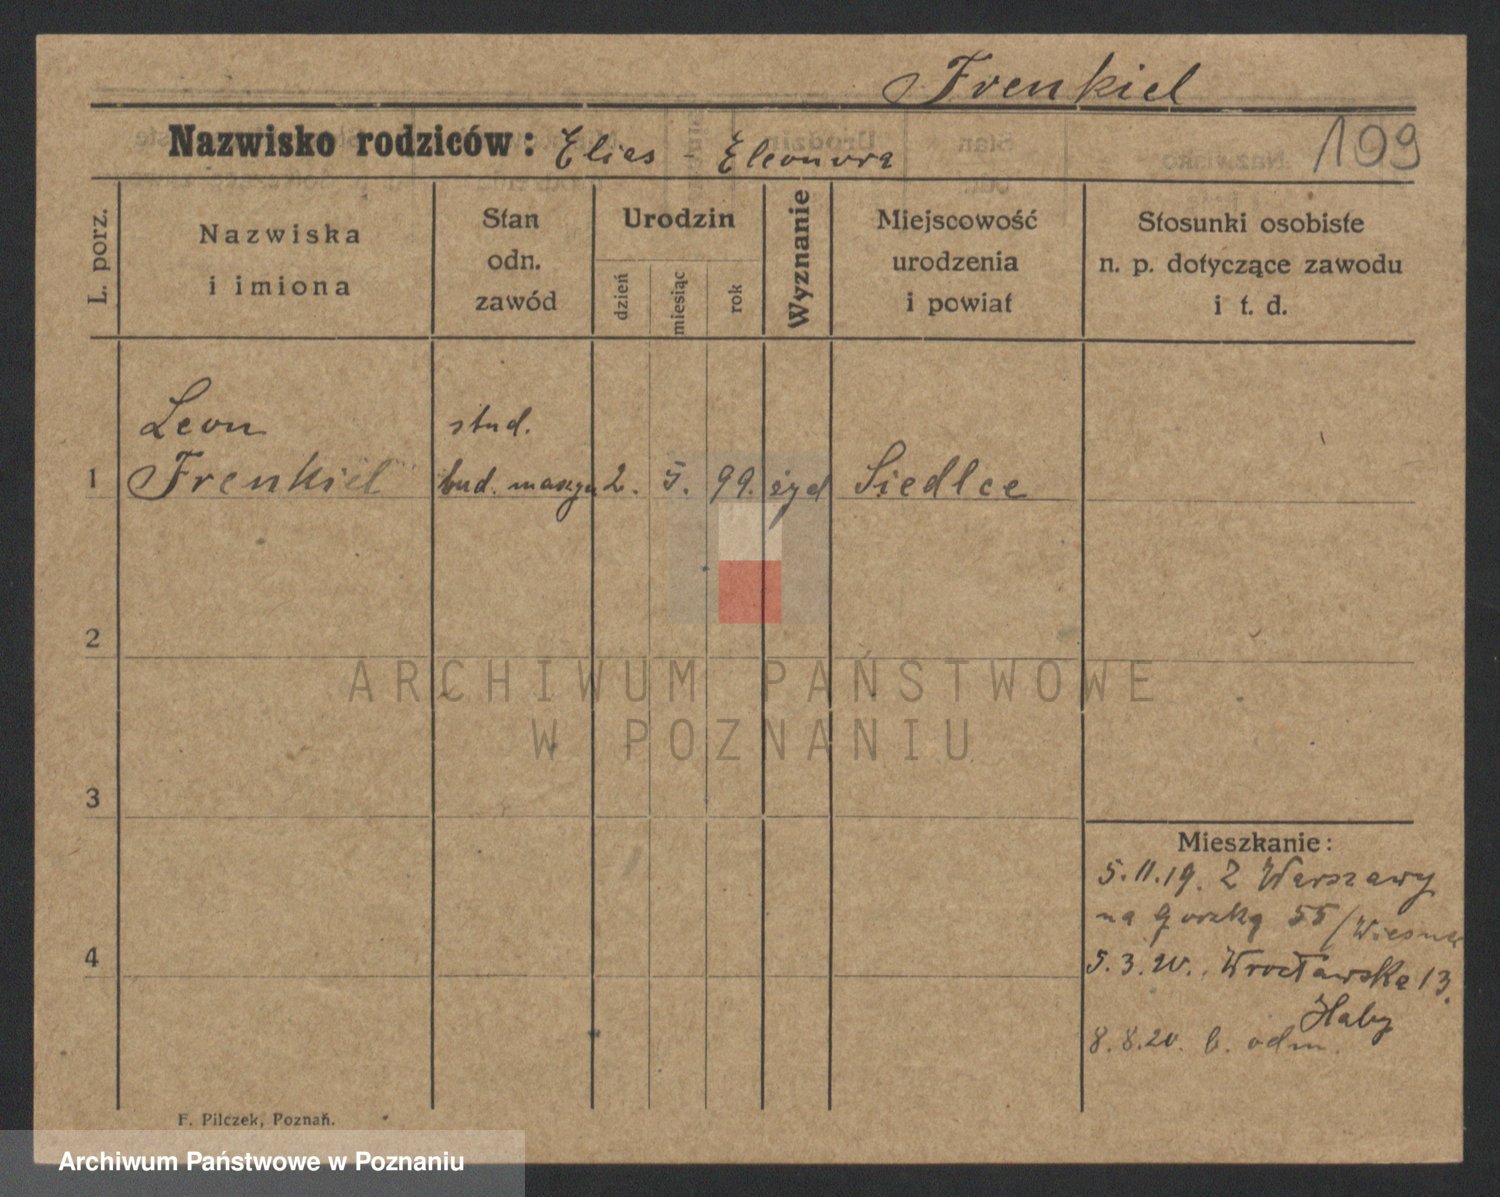 Frenkiel
Nazwisko rodziców: Elias - Eleonora
199
L. porz.
Nazwiska
i imiona
Stan
odn.
zawód
Urodzin
dzień
miesiąc
rok
Wyznanie
Miejscowość
urodzenia
i powiat
Stosunki osobiste
n. p. dotyczące zawodu
i t. d.
Leon
stud.
1 Frenkiel bud. maszyn 2. 5. 99. żyd Siedlce
2
ARCHIWUM PAŃSTWOWE
W POZNANIU
3
Mieszkanie:
5.11.19. Z Warszawy
na 55/
4
5.3.20. Wrocławska 13.
8.8.20. b. odm.
F. Pilczek, Poznań.
Archiwum Państwowe w Poznaniu